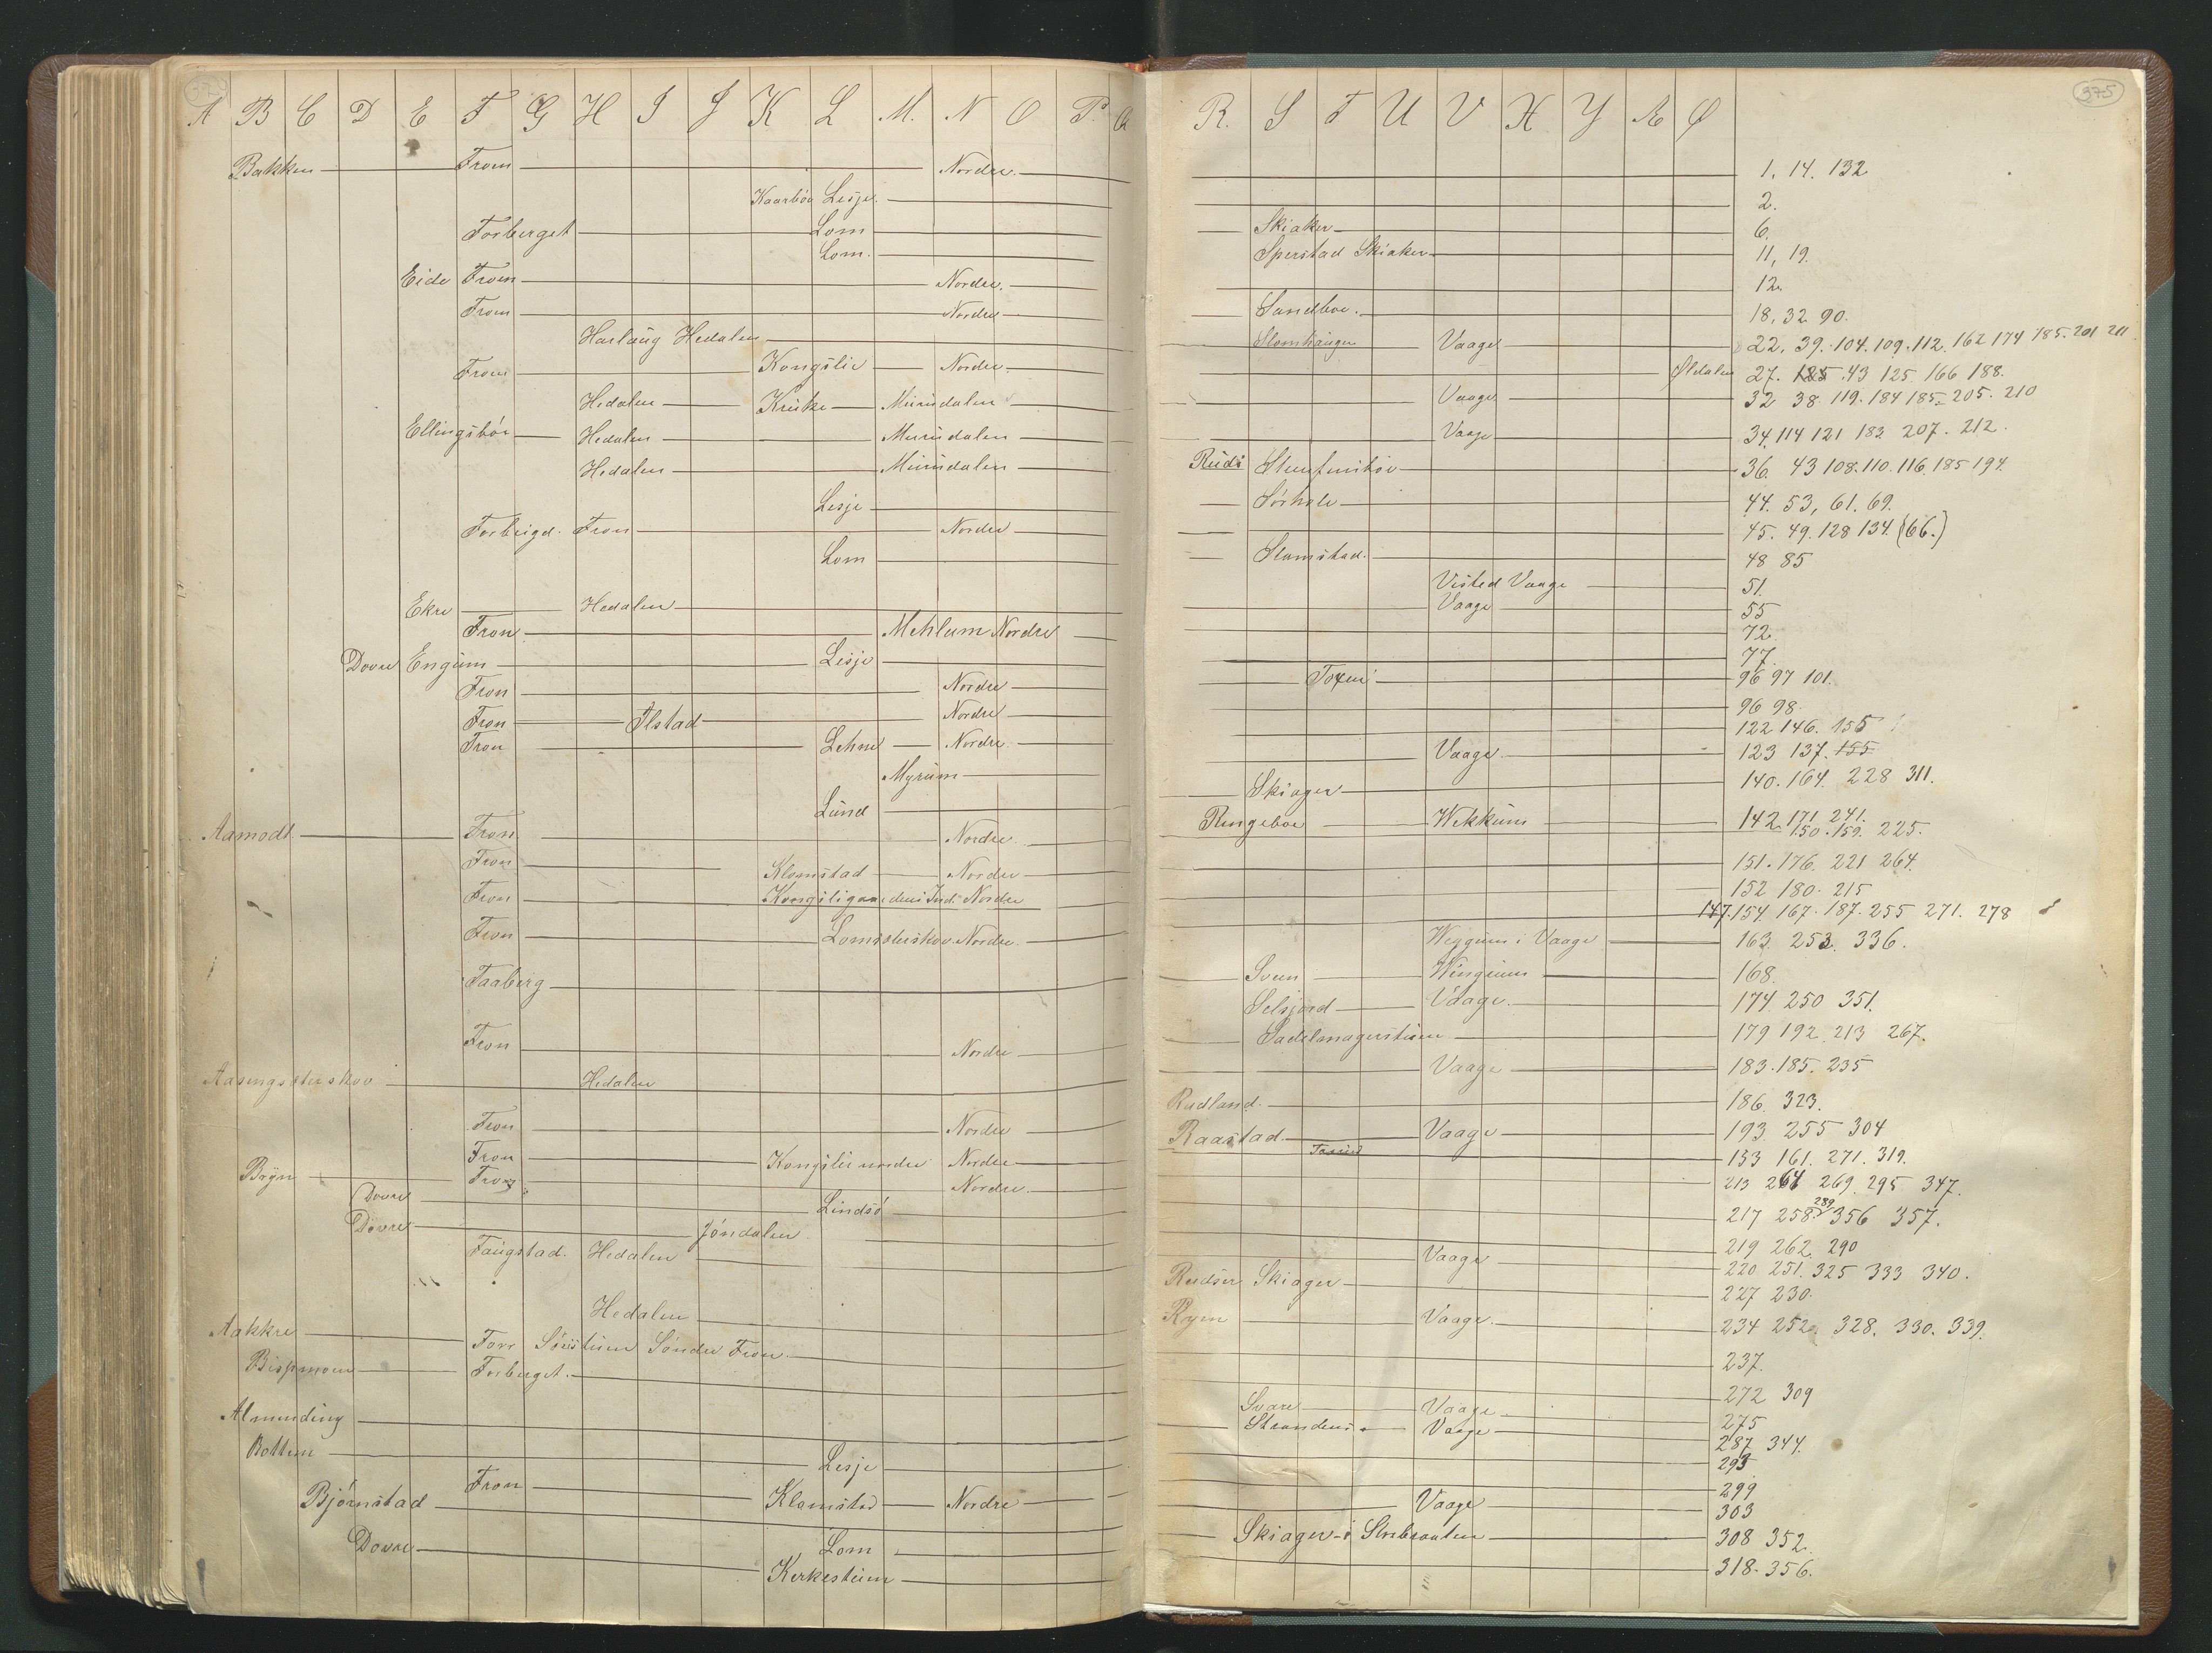 A B C D E F G H I J K L M. N O P. Q R. S T U V X Y Æ Ø 375
Bakken From Nordre. 1. 14. 132
Kaarbøe Lesje. 2.
Forberget Lom Skiaker 6.
Lom. Sperstad Skiaker 11, 19.
Eide From Nordre. 12.
From Nordre Sandboe. 18, 32 90.
Harlaug Hedalen Vaage 22. 39. 104. 109. 112. 162 174 185. 201 211
From Kongslie Nordre. Øldalen 27. 125 43 125 166 188.
Hedalen Kruke Murudalen Vaage 32 38 119. 184 185. 205. 210
Ellingsbøe Hedalen Murudalen Vaage 34 114 121 182 207. 212.
Hedalen Murudalen Ruds 36. 43 108. 110. 116. 185 194.
Lesje Sørhole 44. 53, 61. 69.
Forbeigd. Fron Nordre 45. 49. 128 134. (66.)
Lom Slamstad. 48 85
Visted Vaage 51.
Ekre Hedalen Vaage 55
Fron Mehlum Nordre 72.
Dovre Engum Lesje 77.
Fron Nordre Toxen 96 97 101.
Fron Ilstad Nordre 96 98.
Fron Lehne Nordre 122 146. 155
Myrum Vaage 123 137. 155
Lund Skiager 140. 164. 228 311.
Aamodt Fron Nordre Ringeboe Wekkum 142 171 241. 150. 159. 225.
Fron Klomstad Nordre 151. 176. 221 264.
Fron Nordre 152 180. 215
Fron Nordre. 147. 154. 167. 187. 255 271. 278
Weggum i Vaage 163. 253. 336.
Faaberg Sven Wingum 168.
Selsjord Vaage. 174 250 351.
Fron Nordre Sadelmagerstuen 179 192 213 267.
Hedalen Vaage 183. 185. 235
Rudland. 186. 323.
Fron Nordre Raastad Vaage 193 255 304
Fron Kongslie nordre Nordre 153 161. 271. 319.
Bryn Fron Nordre. 213 264 269. 295 347.
Dovre Lindsø 217 258. 289 356 357.
Dovre Jøndalen 219 262. 290
Faugstad. Hedalen Vaage 220 251. 325 333 340.
Rudser Skiager 227 230.
Hedalen Ryen Vaage. 234 252. 328. 330. 339.
Aakkre Forr Sørstuen Søndre Fron. 237.
Bispmoen Forberget. 272 309
Almending Svare Vaage 275
Strandens Vaage 287 344.
Bottem Lesje 293
Fron Klamstad Nordre 299
Bjørnstad Vaage 303
Dovre Lom Skiager i 308 352.
Kerkestuen 318. 356.